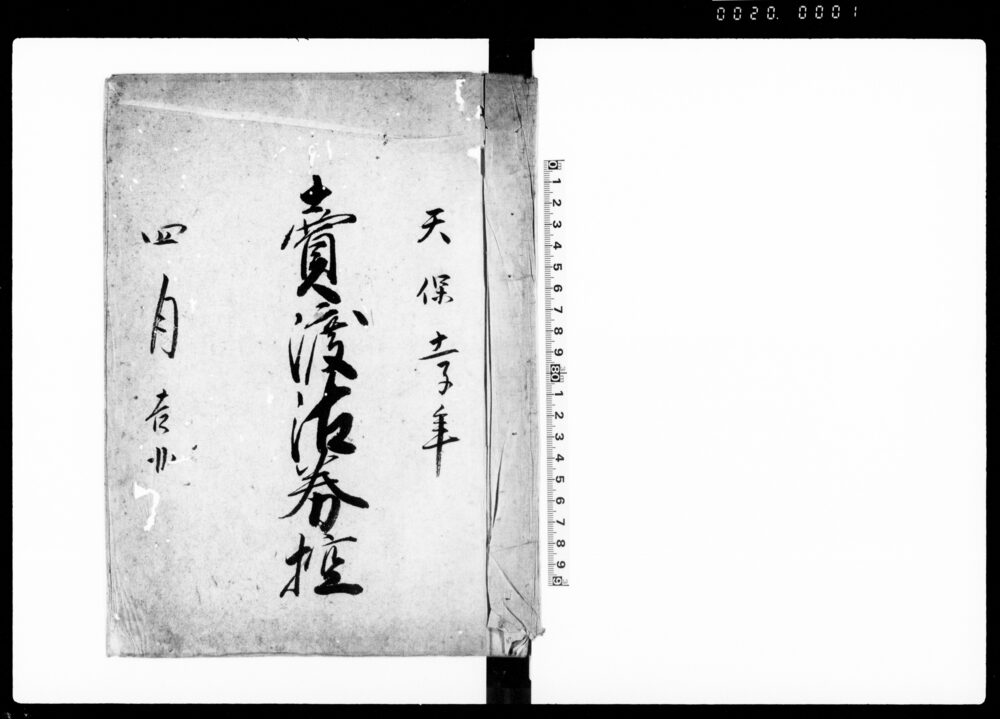 0020. 0001
天保十一子年
賣渡沽券控
四月吉
0 1 2 3 4 5 6 7 8 9 10 1 2 3 4 5 6 7 8 9